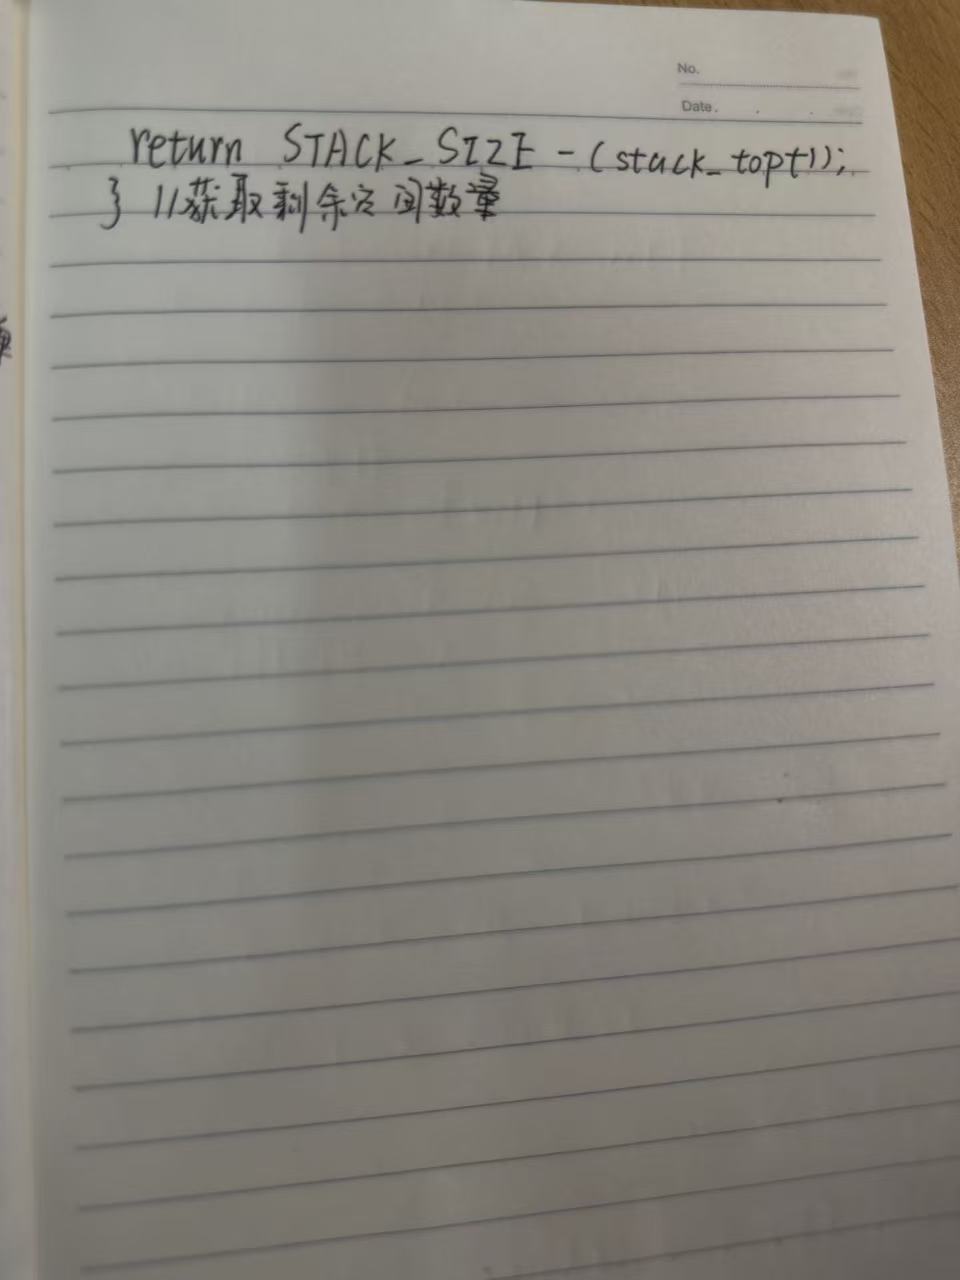 No.
Date. . .
return STACK_SIZE - (stack_top+1);
} //获取剩余空间数量